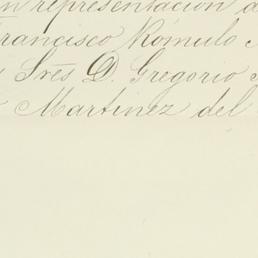 en representación d
Francisco Rómulo
y Sres D. Gregorio
Martinez del